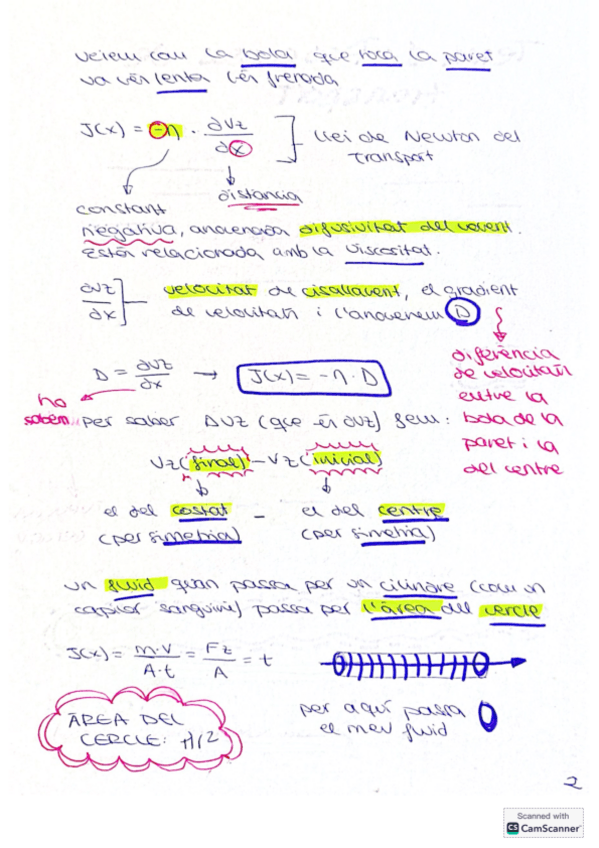 veiem com la bola que toca la paret
va més lenta (és frenada
J(x) = -η · ∂Vz/∂x ] Llei de Newton del
transport
distància
constant
negativa, anomenada difusivitat del moment.
Està relacionada amb la viscositat.
∂Vz/∂x ] velocitat de cisallament, el gradient
de velocitats i l'anomenem D
diferència
de velocitats
entre la
bola de la
paret i la
del centre
D = ∂Vz/∂x → J(x) = -η · D
ho
sabem
per saber ΔVz (que és ∂Vz) fem:
Vz (final) - Vz (inicial)
el del costat - el del centre
(per simetria) (per simetria)
un fluid quan passa per un cilindre (com un
capilar sanguini) passa per l'àrea del cercle
J(x) = m·v/A·t = Fz/A = t
ÀREA DEL
CERCLE: πr2
per aquí passa
el meu fluid
2
Scanned with
CS CamScanner